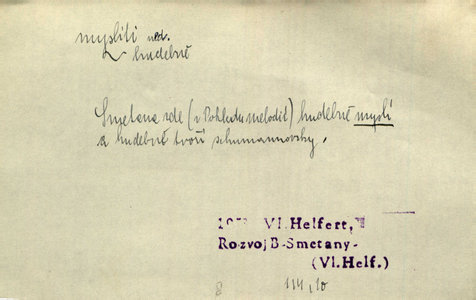 mysliti ned.
hudebně
Smetana zde (v Pohledu melodií) hudebně myslí
a hudebně tvoří schumannovsky.
Vl. Helfert,
Rozvoj B. Smetany-
(Vl. Helf.)
114, 10
8